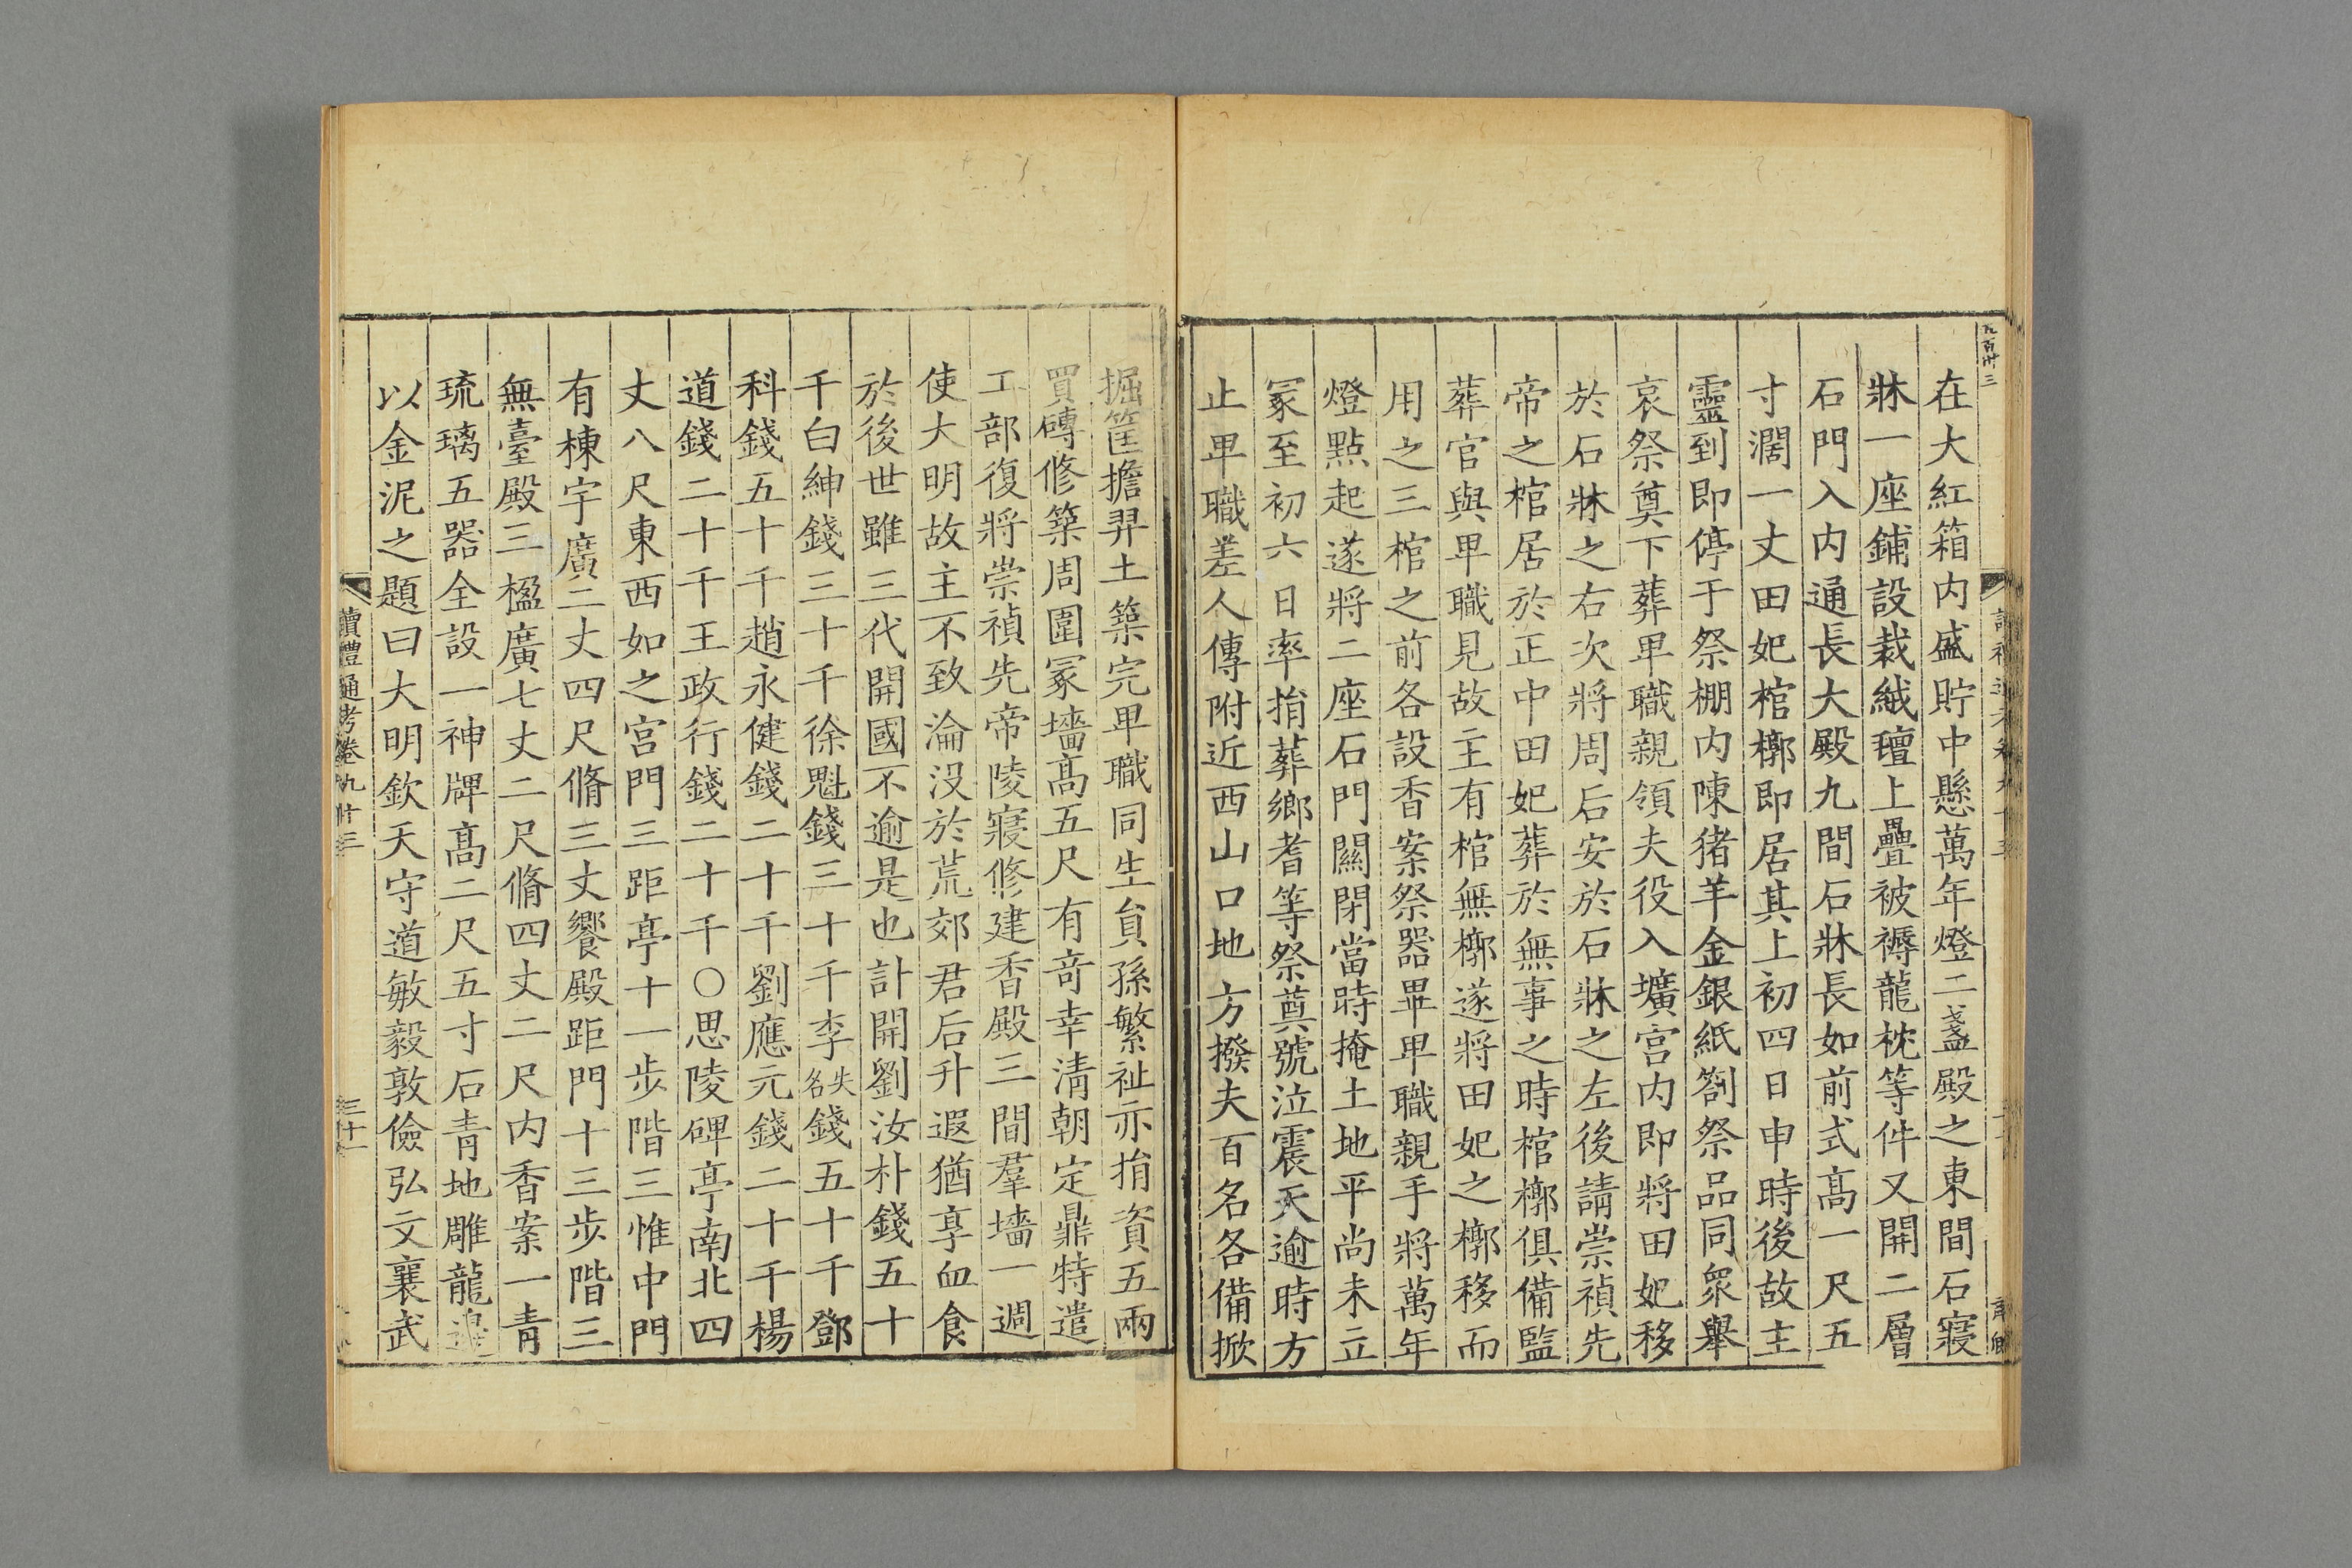 九百卅三
在大紅箱内盛貯中懸萬年燈二盞殿之東間石寢
牀一座鋪設裁絨氊上疊被褥龍枕等件又開二層
石門入内通長大殿九間石牀長如前式髙一尺五
寸濶一丈田妃棺槨即居其上初四日申時後故主
靈到即停于祭棚内陳猪羊金銀紙劄祭品同衆舉
哀祭奠下葬畢職親領夫役入壙宫内即將田妃移
於石牀之右次將周后安於石牀之左後請崇禎先
帝之棺居於正中田妃葬於無事之時棺槨俱備監
葬官與卑職見故主有棺無槨遂將田妃之槨移而
用之三棺之前各設香案祭器畢卑職親手將萬年
燈點起遂將二座石門關閉當時掩土地平尚未立
冢至初六日率捐葬鄉耆等祭奠號泣震天逾時方
止卑職差人傳附近西山口地方撥夫百名各備掀
掘筐擔羿土築完卑職同生員孫繁祉亦捐資五兩
買磚修築周圍冢墻髙五尺有竒幸清朝定鼎特遣
工部復將崇禎先帝陵寢修建香殿三間羣墻一週
使大明故主不致淪没於荒郊君后升遐猶享血食
於後世雖三代開國不逾是也計開劉汝朴錢五十
千白紳錢三十千徐魁錢三十千李失名錢五十千鄧
科錢五十千趙永健錢二十千劉應元錢二十千楊
道錢二十千王政行錢二十千○思陵碑亭南北四
丈八尺東西如之宫門三距亭十一步階三惟中門
有棟宇廣二丈四尺脩三丈饗殿距門十三步階三
無臺殿三楹廣七丈二尺脩四丈二尺内香案一青
琉璃五器全設一神牌髙二尺五寸石青地雕龍邊
以金泥之題曰大明欽天守道敏毅敦儉弘文襄武
讀禮通考卷九十三
三十一